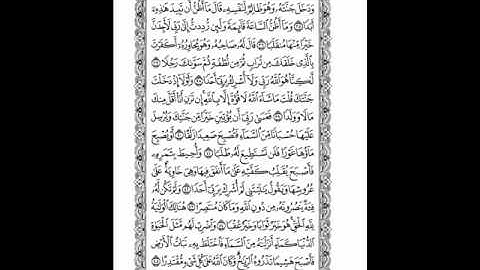 وَدَخَلَ جَنَّتَهُۥ وَهُوَ ظَالِمٌ لِّنَفْسِهِۦ قَالَ مَآ أَظُنُّ أَن تَبِيدَ هَٰذِهِۦٓ
أَبَدًا ٣٥ وَمَآ أَظُنُّ ٱلسَّاعَةَ قَآئِمَةً وَلَئِن رُّدِدتُّ إِلَىٰ رَبِّى لَأَجِدَنَّ
خَيْرًا مِّنْهَا مُنقَلَبًا ٣٦ قَالَ لَهُۥ صَاحِبُهُۥ وَهُوَ يُحَاوِرُهُۥٓ أَكَفَرْتَ
بِٱلَّذِى خَلَقَكَ مِن تُرَابٍ ثُمَّ مِن نُّطْفَةٍ ثُمَّ سَوَّىٰكَ رَجُلًا ٣٧
لَّٰكِنَّا۠ هُوَ ٱللَّهُ رَبِّى وَلَآ أُشْرِكُ بِرَبِّىٓ أَحَدًا ٣٨ وَلَوْلَآ إِذْ دَخَلْتَ
جَنَّتَكَ قُلْتَ مَا شَآءَ ٱللَّهُ لَا قُوَّةَ إِلَّا بِٱللَّهِ إِن تَرَنِ أَنَا۠ أَقَلَّ مِنكَ
مَالًا وَوَلَدًا ٣٩ فَعَسَىٰ رَبِّىٓ أَن يُؤْتِيَنِ خَيْرًا مِّن جَنَّتِكَ وَيُرْسِلَ
عَلَيْهَا حُسْبَانًا مِّنَ ٱلسَّمَآءِ فَتُصْبِحَ صَعِيدًا زَلَقًا ٤٠ أَوْ يُصْبِحَ
مَآؤُهَا غَوْرًا فَلَن تَسْتَطِيعَ لَهُۥ طَلَبًا ٤١ وَأُحِيطَ بِثَمَرِهِۦ
فَأَصْبَحَ يُقَلِّبُ كَفَّيْهِ عَلَىٰ مَآ أَنفَقَ فِيهَا وَهِىَ خَاوِيَةٌ عَلَىٰ
عُرُوشِهَا وَيَقُولُ يَٰلَيْتَنِى لَمْ أُشْرِكْ بِرَبِّىٓ أَحَدًا ٤٢ وَلَمْ تَكُن لَّهُۥ
فِئَةٌ يَنصُرُونَهُۥ مِن دُونِ ٱللَّهِ وَمَا كَانَ مُنتَصِرًا ٤٣ هُنَالِكَ ٱلْوَلَٰيَةُ
لِلَّهِ ٱلْحَقِّ هُوَ خَيْرٌ ثَوَابًا وَخَيْرٌ عُقْبًا ٤٤ وَٱضْرِبْ لَهُم مَّثَلَ ٱلْحَيَوٰةِ
ٱلدُّنْيَا كَمَآءٍ أَنزَلْنَٰهُ مِنَ ٱلسَّمَآءِ فَٱخْتَلَطَ بِهِۦ نَبَاتُ ٱلْأَرْضِ
فَأَصْبَحَ هَشِيمًا تَذْرُوهُ ٱلرِّيَٰحُ وَكَانَ ٱللَّهُ عَلَىٰ كُلِّ شَىْءٍ مُّقْتَدِرًا ٤٥